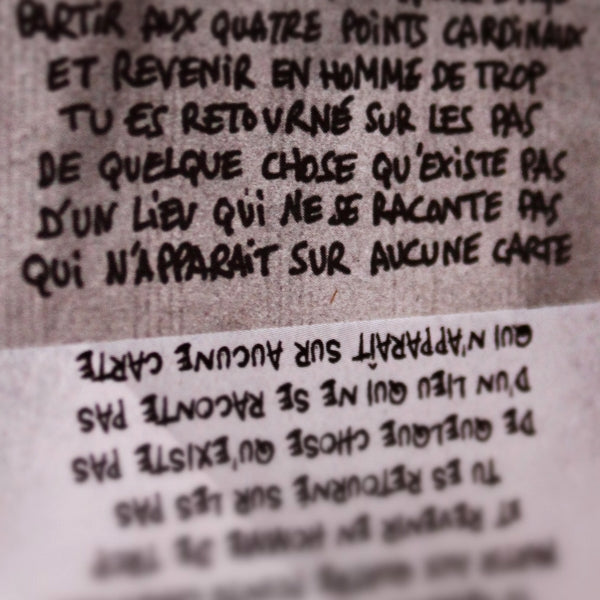 PARTIR AUX QUATRE POINTS CARDINAUX
ET REVENIR EN HOMME DE TROP
TU ES RETOURNÉ SUR LES PAS
DE QUELQUE CHOSE QU'EXISTE PAS
D'UN LIEU QUI NE SE RACONTE PAS
QUI N'APPARAÎT SUR AUCUNE CARTE
QUI N'APPARAÎT SUR AUCUNE CARTE
D'UN LIEU QUI NE SE RACONTE PAS
DE QUELQUE CHOSE QU'EXISTE PAS
TU ES RETOURNE SUR LES PAS
ET REVENIR EN HOMME DE TROP